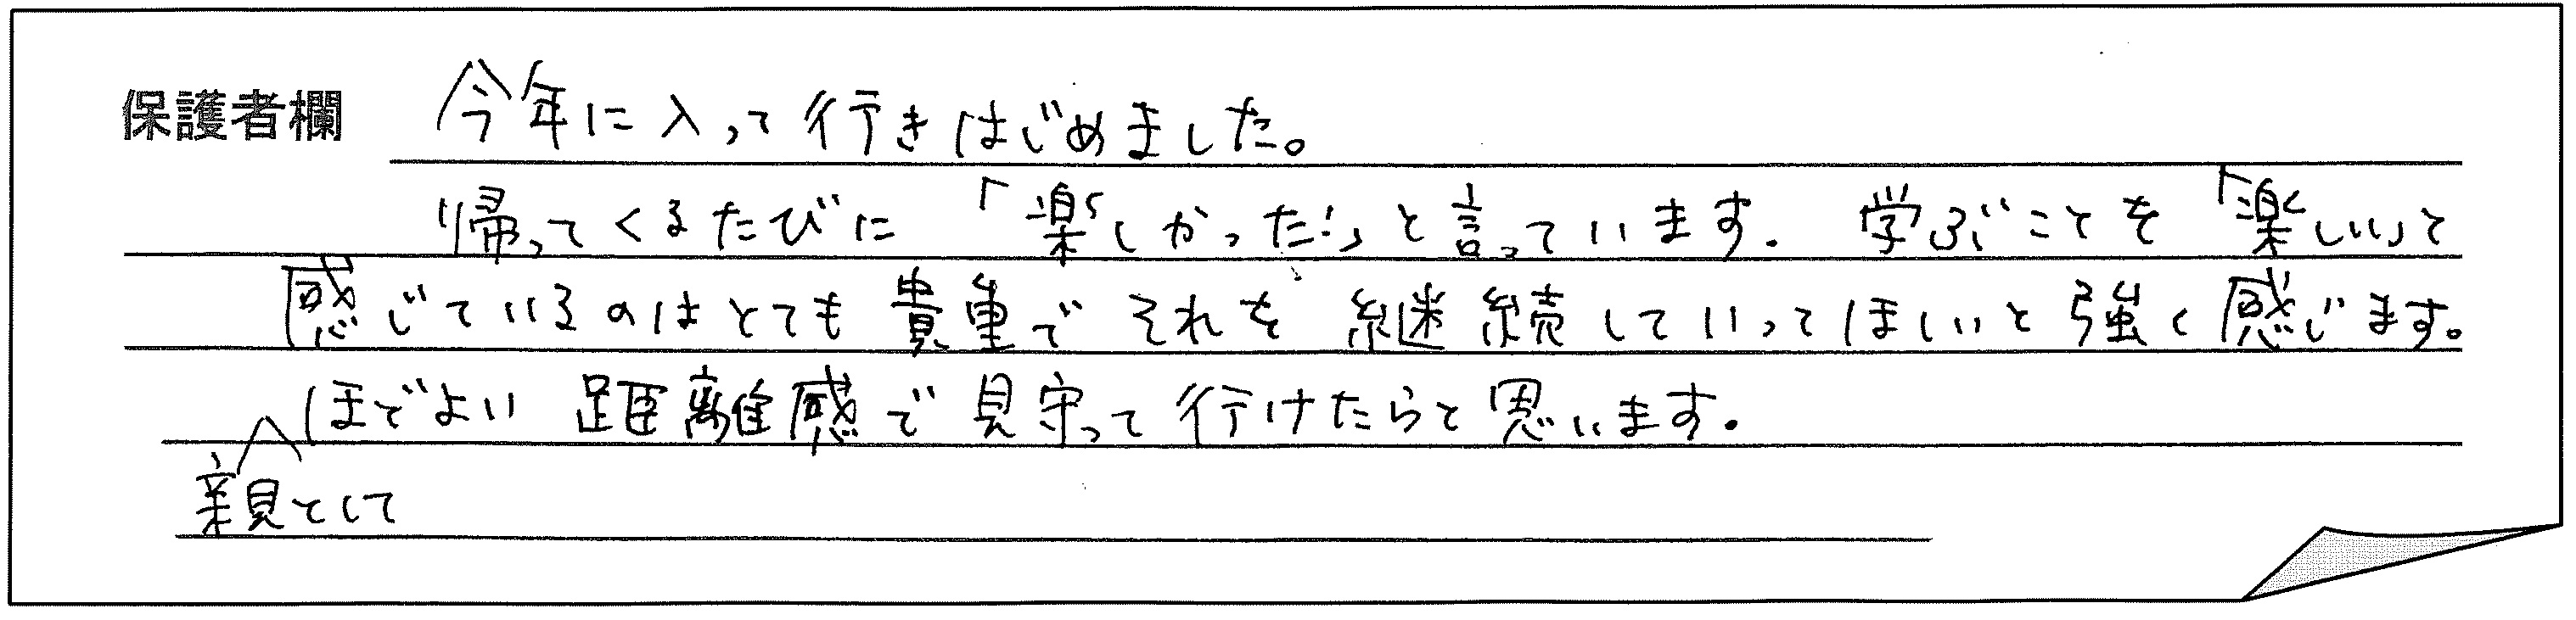 保護者欄 今年に入って行きはじめました。
帰ってくるたびに「楽しかった!」と言っています。学ぶことを「楽しい」と
感じているのはとても貴重でそれを継続していってほしいと強く感じます。
ほどよい距離感で見守って行けたらと思います。
親として